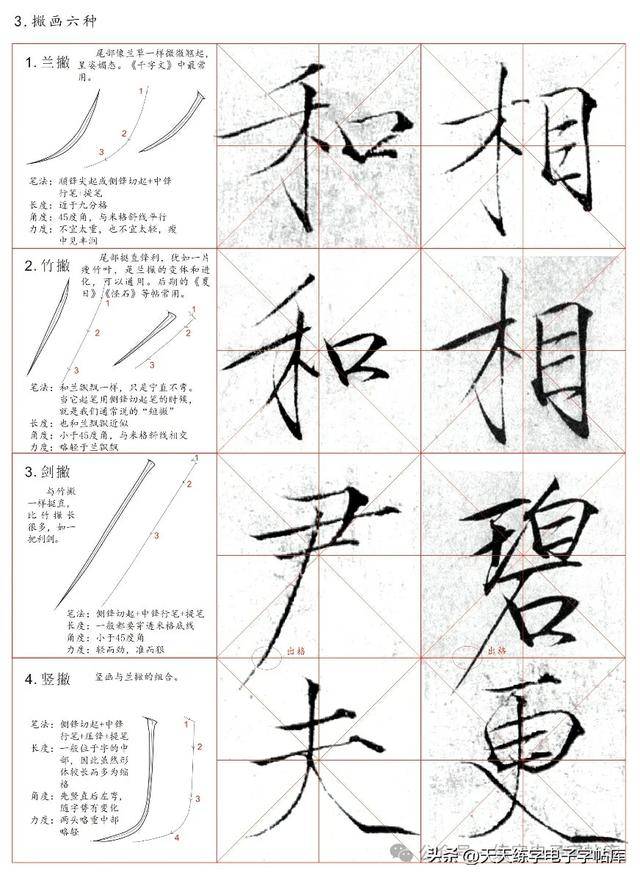 3.撇画六种
1.兰撇
尾部像兰草一样微微翘起,
呈姿媚态。《千字文》中最常
用。
1
2
3
笔法:顺锋尖起或侧锋切起+中锋
行笔+提笔
长度:近于九分格
角度:45度角,与米格斜线平行
力度:不宜太重,也不宜太轻,瘦
中见丰润
和
相
2.竹撇
尾部挺直锋利,犹如一片
瘦竹叶,是兰撇的变体和进
化,可以通用。后期的《夏
日》,《怪石》等帖常用。
1
2
3
1
2
3
笔法:和兰飘飘一样,只是宁直不弯。
当它起笔用侧锋切起笔的时候,
就是我们通常说的“短撇”
长度:也和兰飘飘近似
角度:小于45度角,与米格斜线相交
力度:略轻于兰飘飘
和
相
3.剑撇
与竹撇
一样挺直,
比竹撇长
很多,如一
把利剑。
1
2
3
笔法:侧锋切起+中锋行笔+提笔
长度:一般都要穿透米格底线
角度:小于45度角
力度:轻而劲,准而狠
尹
碧
出格
出格
4.竖撇
竖画与兰撇的组合。
笔法:侧锋切起+中锋
行笔+压锋+提笔
长度:一般位于字的中
部,因此虽然形
体较长而多为缩
格
角度:先竖直后左弯,
随字势有变化
力度:两头略重中部
略轻
1
2
3
4
夫
更
头条@天天练字电子字帖库